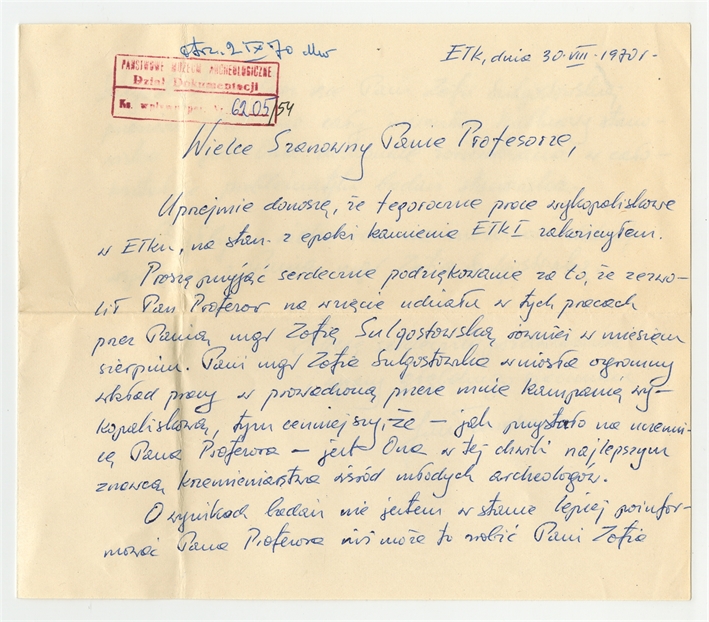 otrz. 2 IX 70 Mw
Ełk, dnia 30-VIII-1970r-
PAŃSTWOWE MUZEUM ARCHEOLOGICZNE
Dział Dokumentacji
6205/54
Wielce Szanowny Panie Profesorze,
Uprzejmie donoszę, że tegoroczne prace wykopaliskowe
w Ełku, na stan. z epoki kamienia Ełk I zakończyłem.
Proszę przyjąć serdeczne podziękowanie za to, że zezwo-
lił Pan Profesor na wzięcie udziału w tych pracach
przez Panią mgr Zofię Sulgostowską również w miesiącu
sierpniu. Pani mgr Zofia Sulgostowska wniosła ogromny
wkład pracy w prowadzoną przeze mnie kampanię wy-
kopaliskową, tym cenniejszy iże – jak przystało na uczenni-
cę Pana Profesora – jest Ona w tej chwili najlepszym
znawcą krzemieniarstwa wśród młodych archeologów.
O wynikach badań nie jestem w stanie lepiej poinfor-
mować Pana Profesora niż może to zrobić Pani Zofia